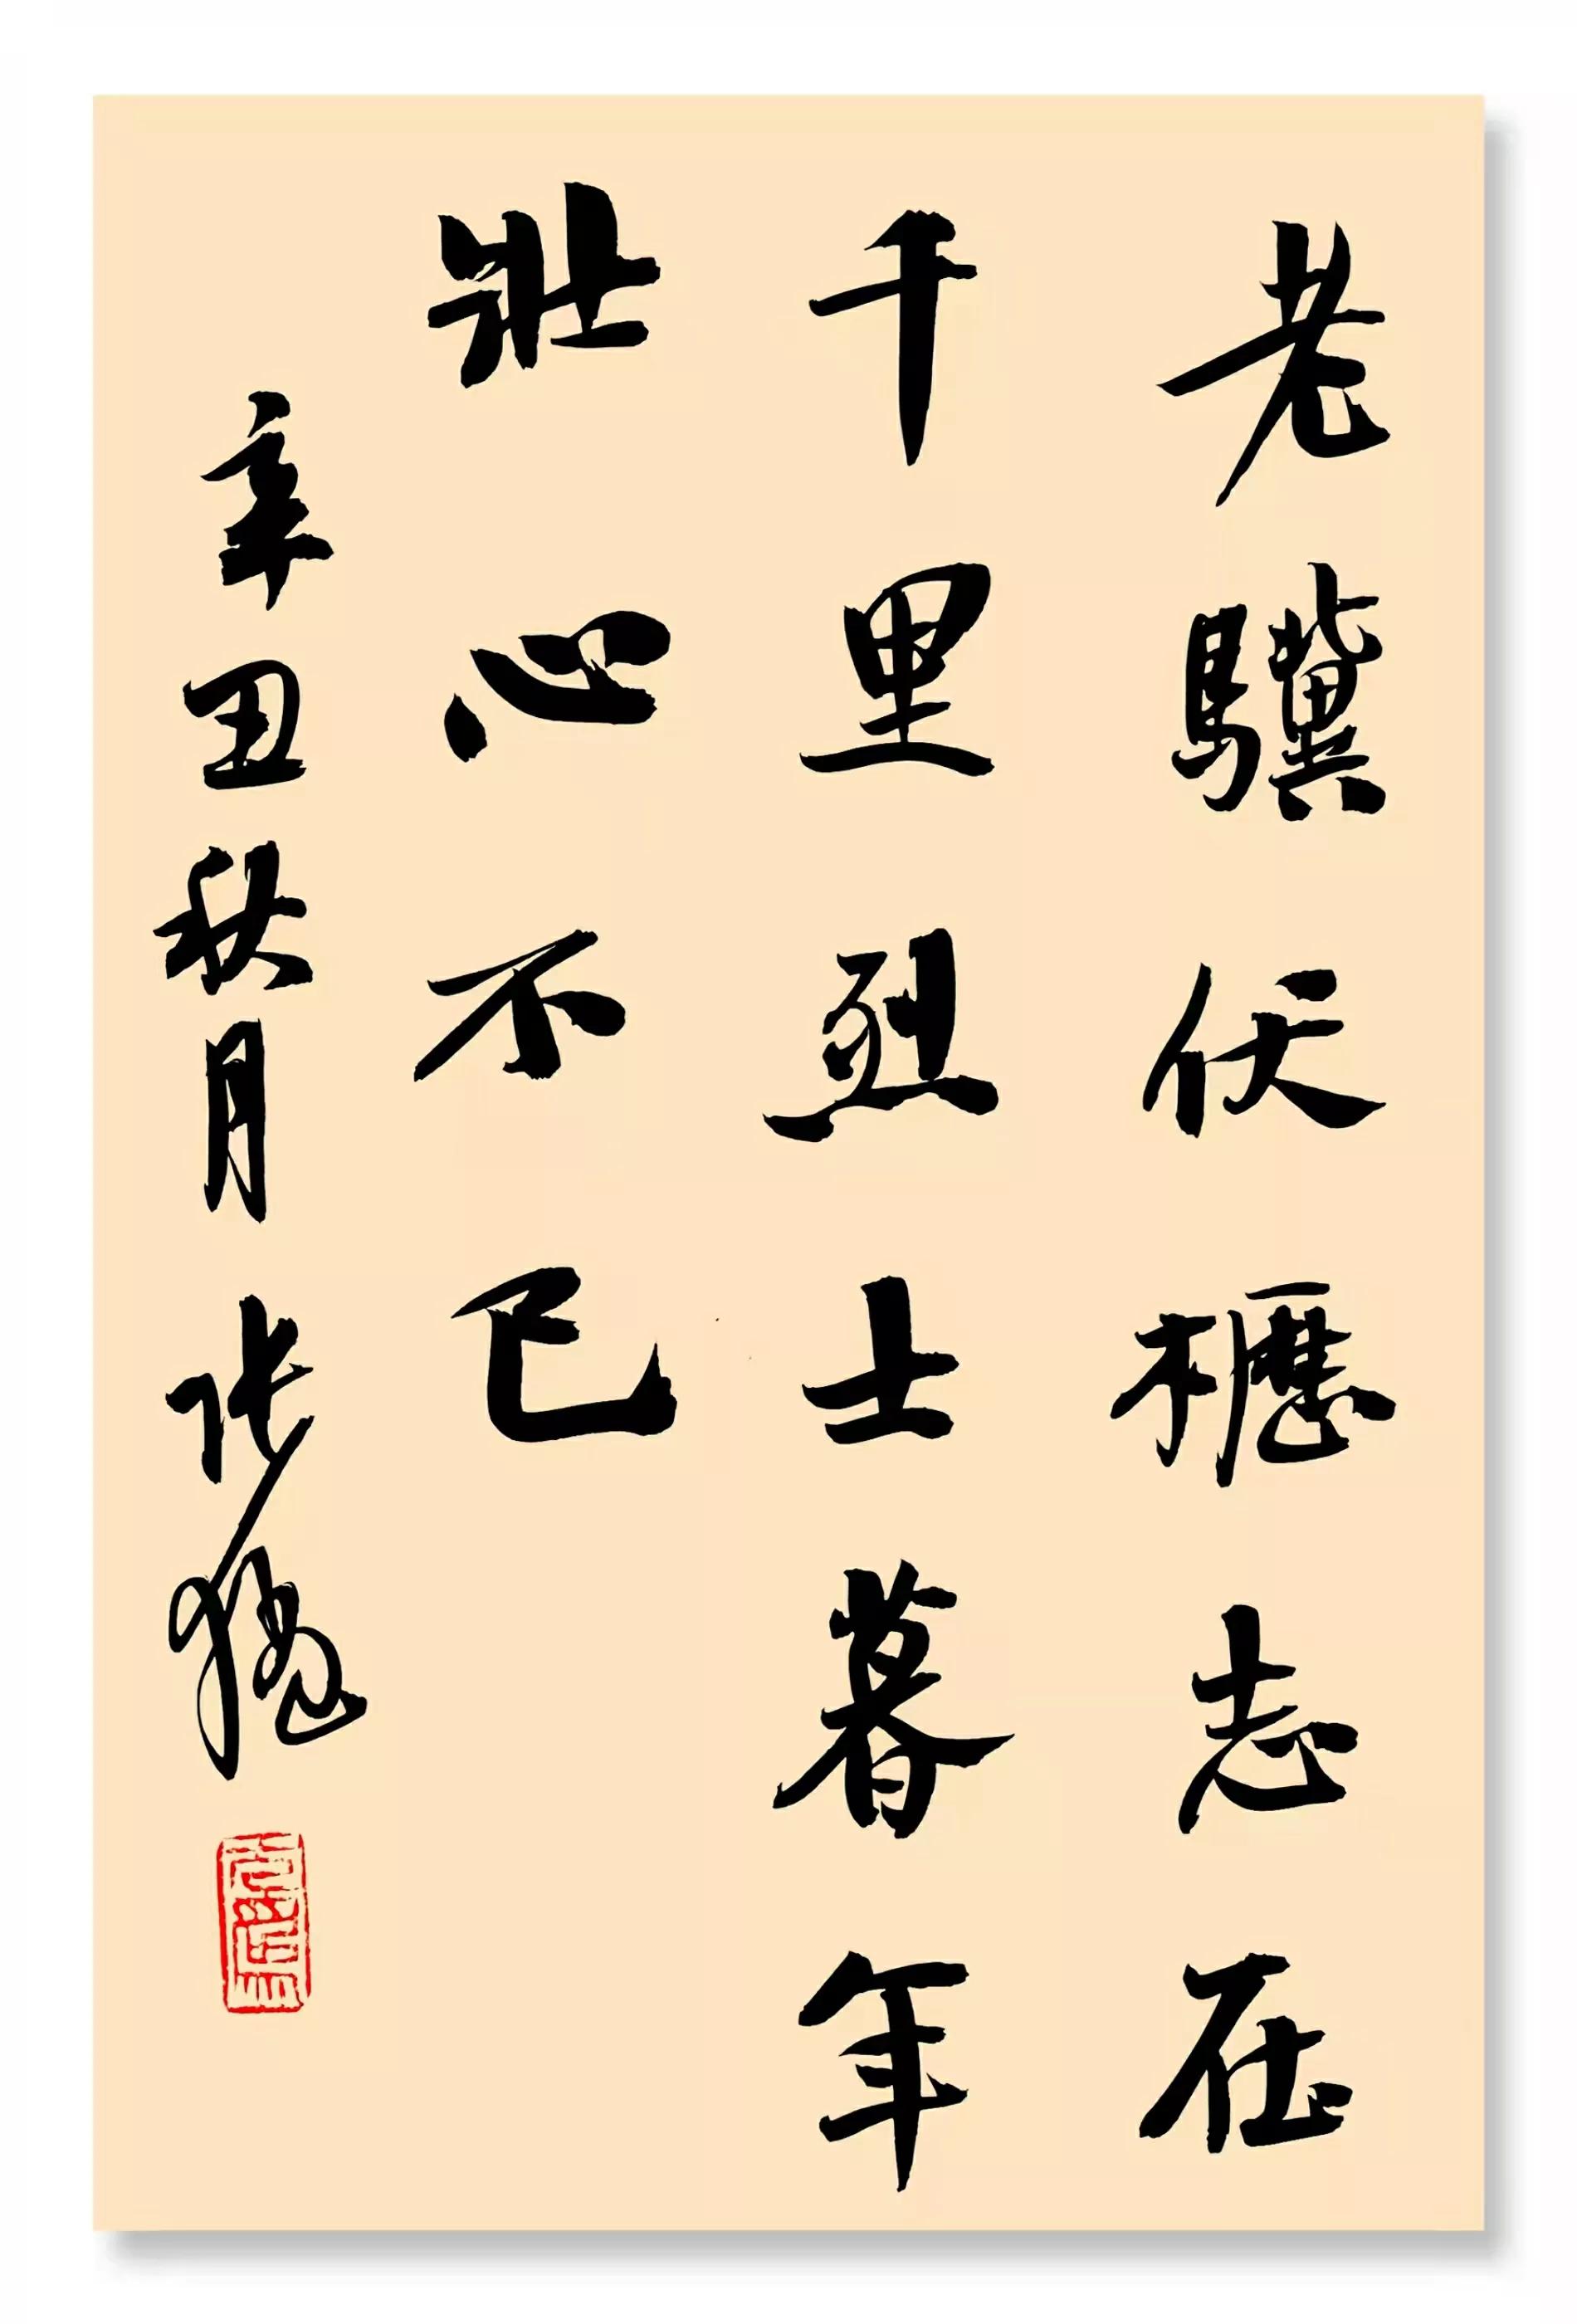 老驥伏櫪志在
千里烈士暮年
壯心不已
辛丑秋月 张